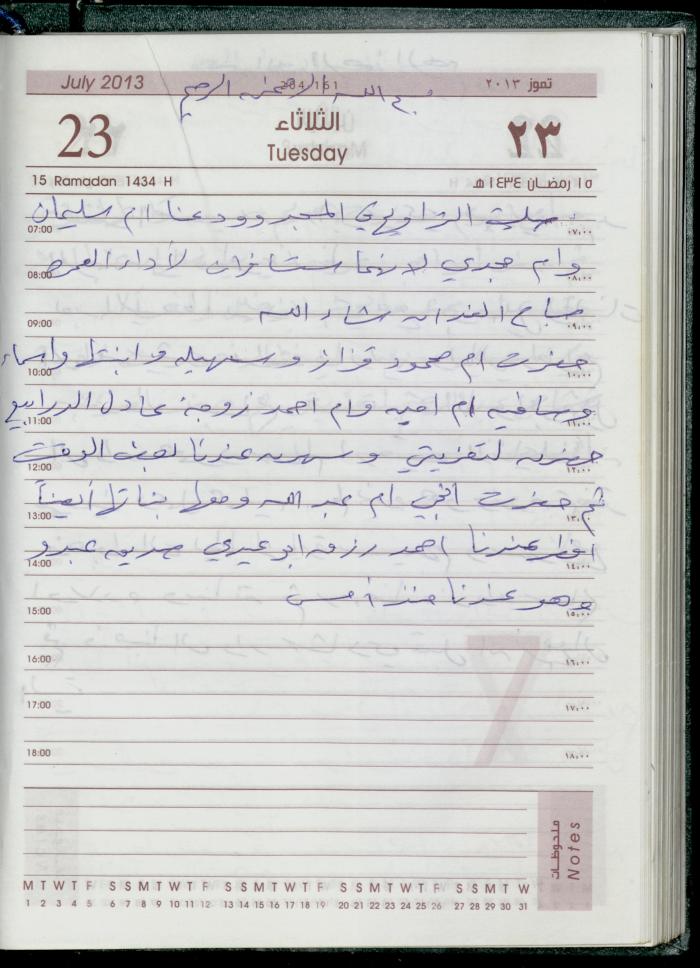 July 2013
204/161
تموز ٢٠١٣
بسم الله الرحمن الرحيم
23
الثلاثاء
Tuesday
٢٣
15 Ramadan 1434 H
١٥ رمضان ١٤٣٤ هـ
صليت التراويح في المسجد وودعنا ام سليمان
07:00
٠٧:٠٠
وام مجدي لانهما ستسافران لأداء العمره
08:00
٠٨:٠٠
صباح الغد ان شاء الله
09:00
٠٩:٠٠
حضرت ام محمود قزاز وسهيله وابنتها واسماء
10:00
١٠:٠٠
وسافيه ام اميه وام احمد زوجة عادل
11:00
١١:٠٠
حضرن لتعزيتي وسهرن عندنا لبعض الوقت
12:00
١٢:٠٠
ثم حضرت اختي ام عبد الله ومعها بناتها أيضاً
13:00
١٣:٠٠
افطر عندنا احمد رزق ابو عيدي صديق عبدو
14:00
١٤:٠٠
وهو عندنا منذ أمس
15:00
١٥:٠٠
16:00
١٦:٠٠
17:00
١٧:٠٠
18:00
١٨:٠٠
7
ملحوظات
Notes
M T W T F S S M T W T F S S M T W T F S S M T W T F S S M T W
1 2 3 4 5 6 7 8 9 10 11 12 13 14 15 16 17 18 19 20 21 22 23 24 25 26 27 28 29 30 31